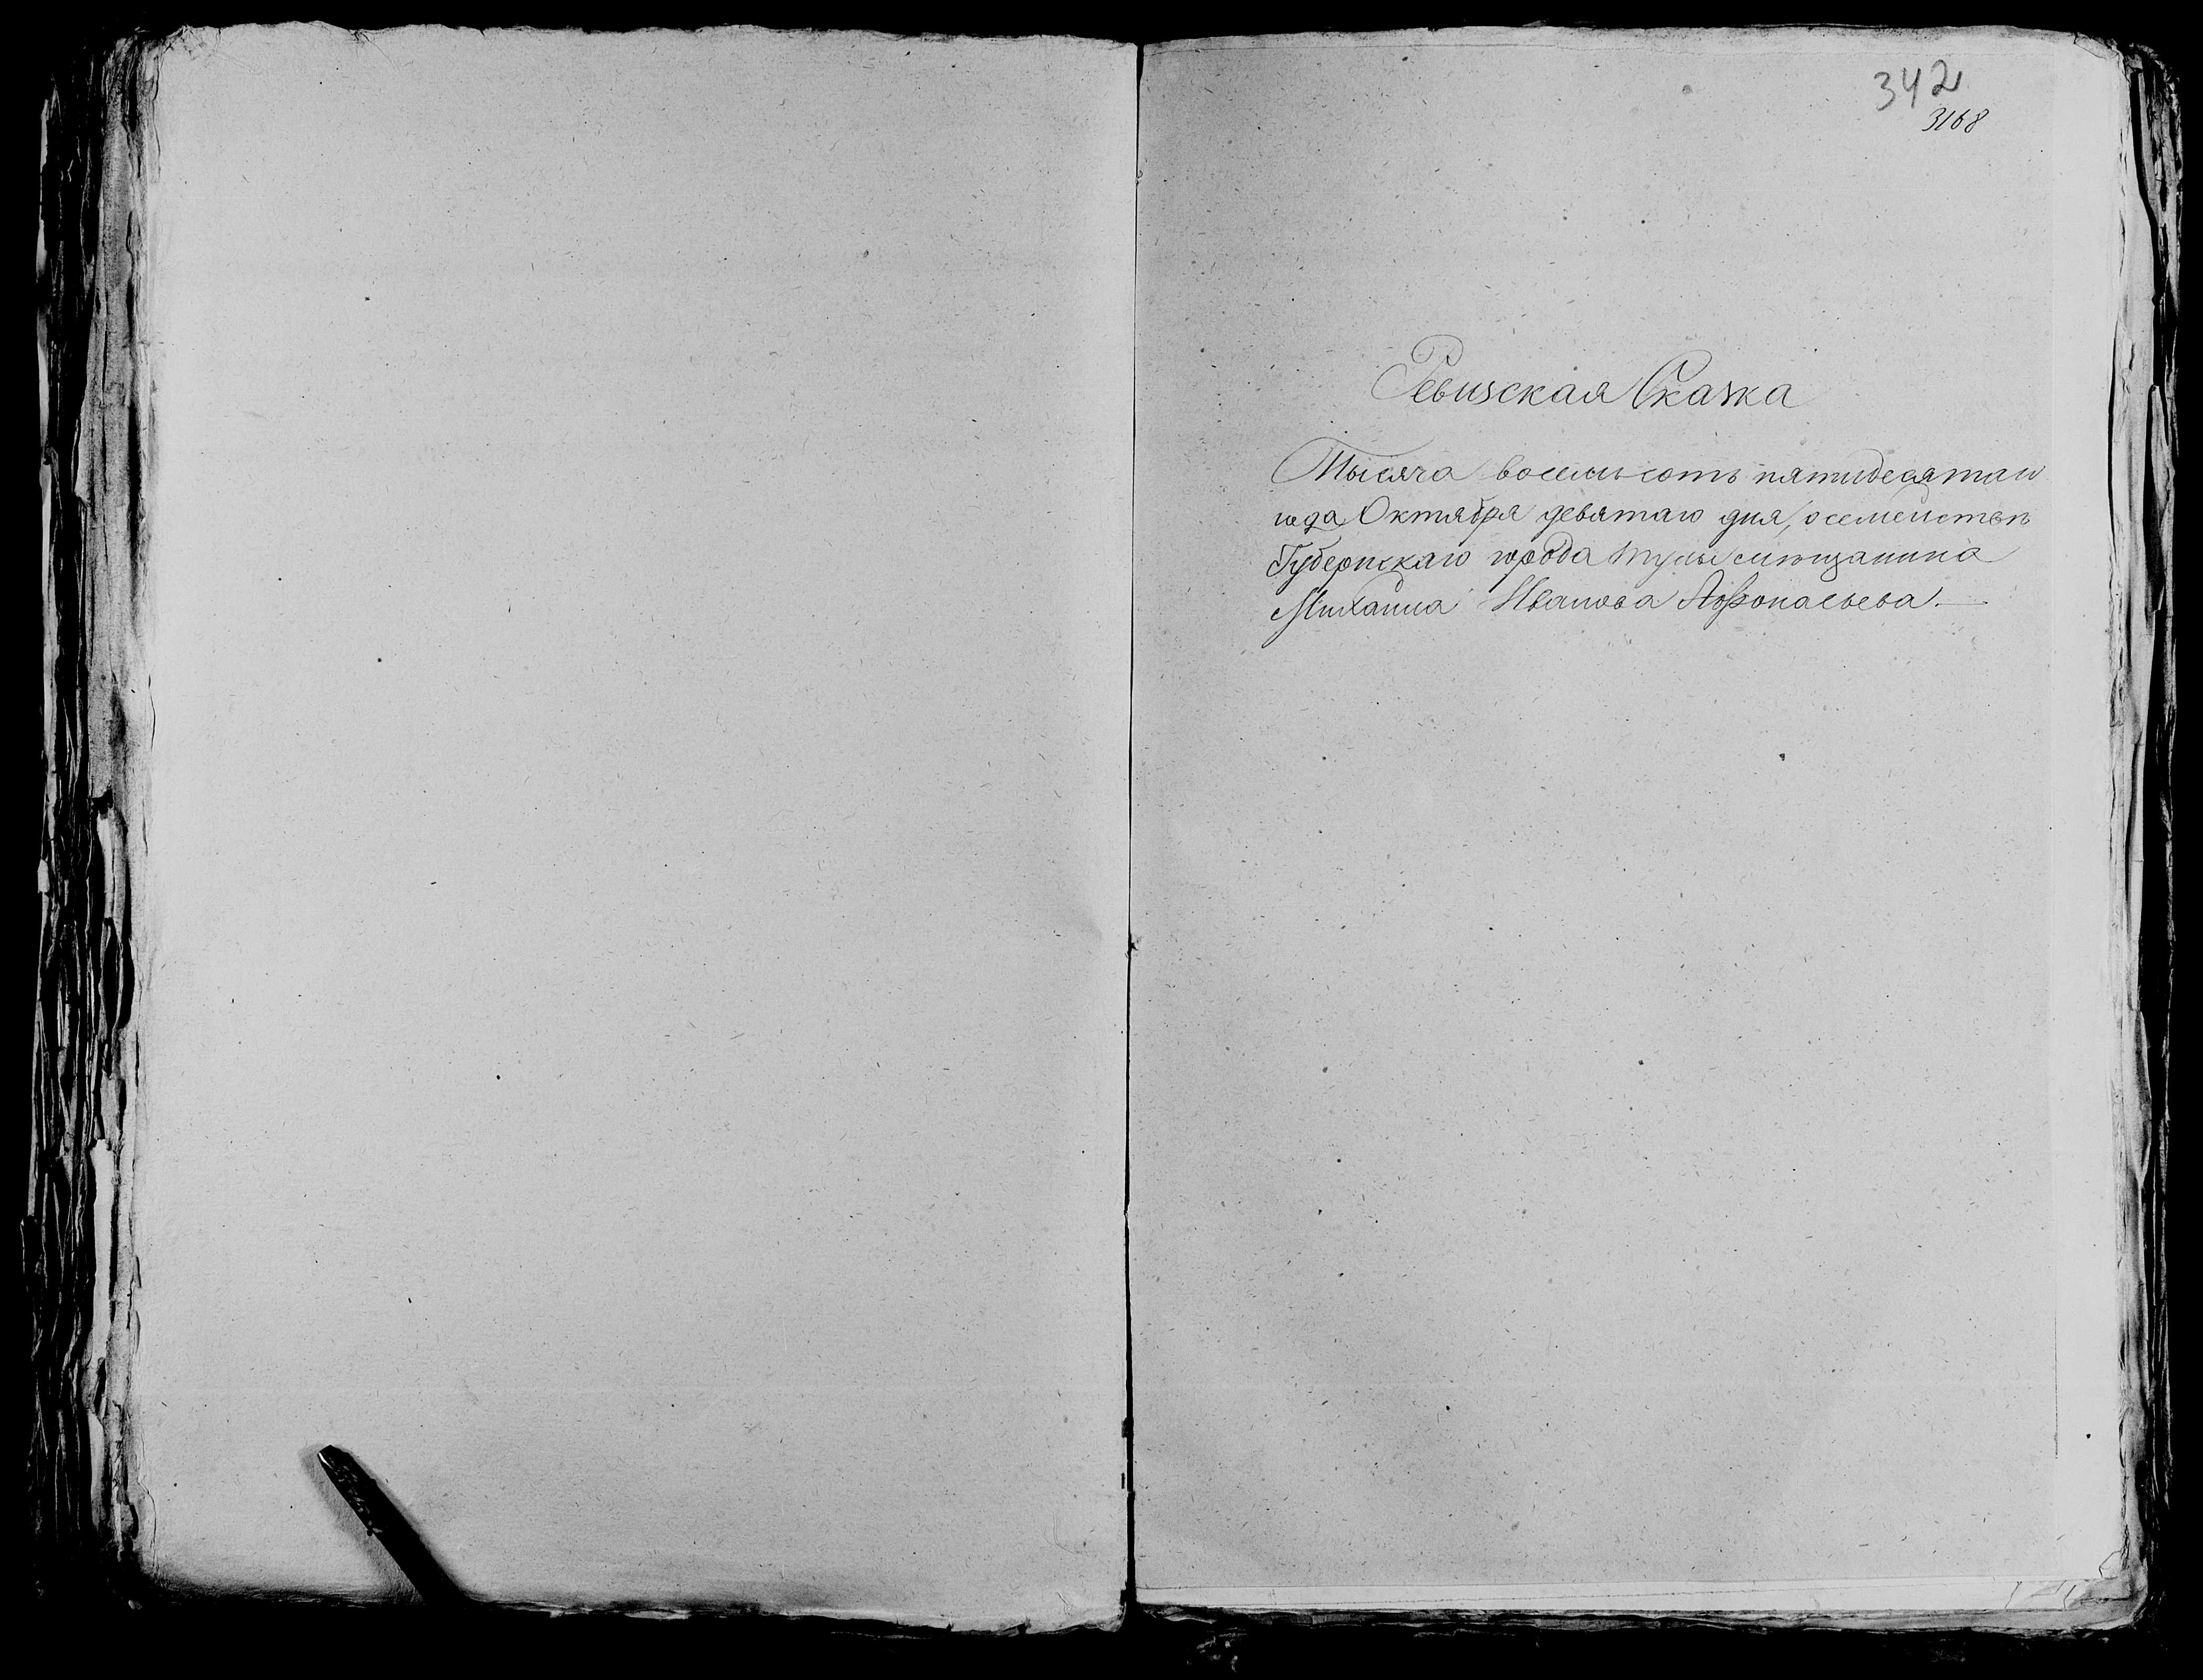 342
3168
Ревизская Сказка
Тысяча восемьсотъ пятидесятаго
года Октября девятаго дня, о семействѣ
Губернскаго города Тулы мѣщанина
Михаила Иванова